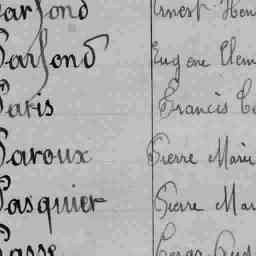 arfond Ernest Hen
Parfond Eugène Clem
Paris Francis
Paroux Pierre Marie
Pasquier Pierre Mar
Passe